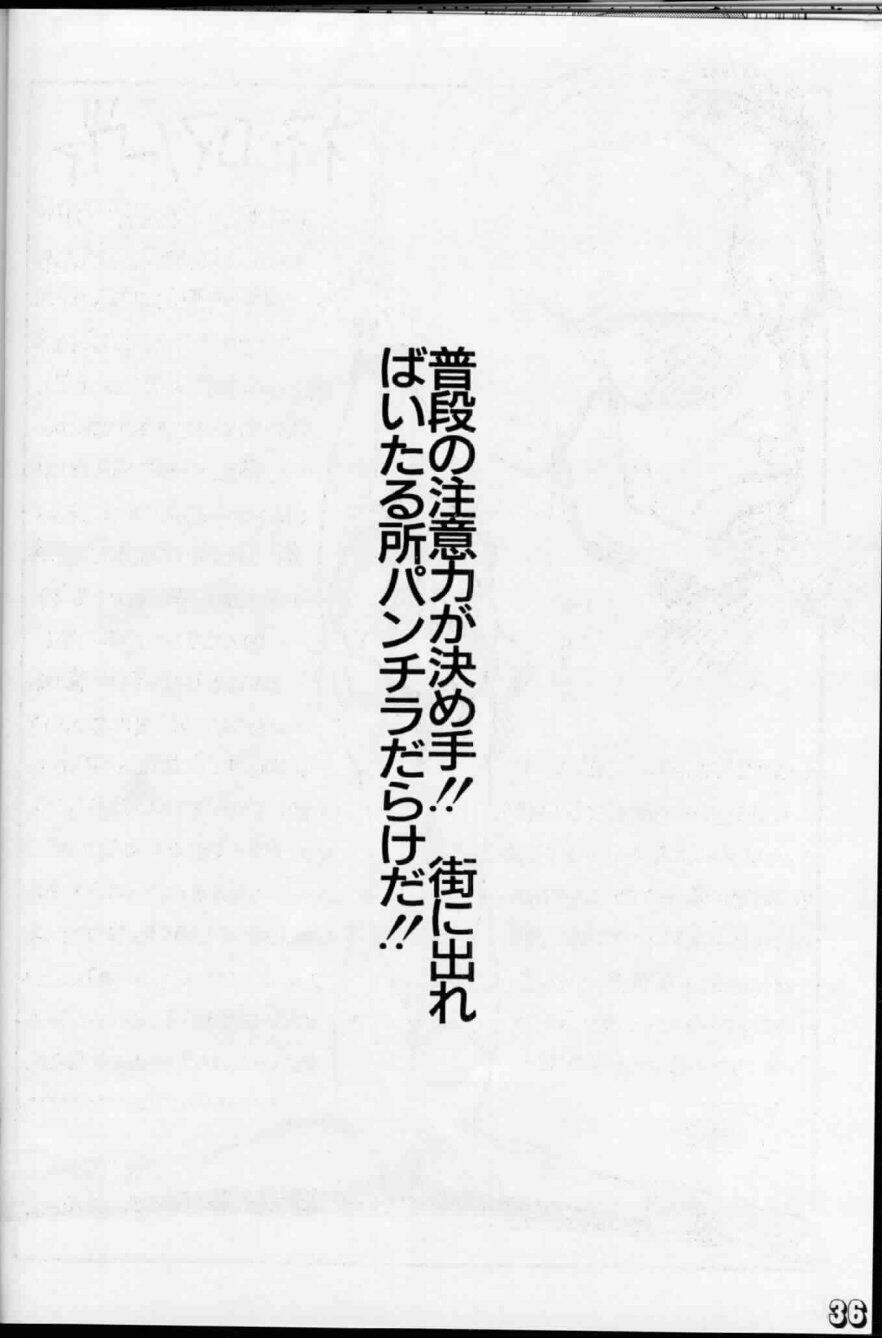 普段の注意力が決め手!!　街に出れ
ばいたる所パンチラだらけだ!!
36